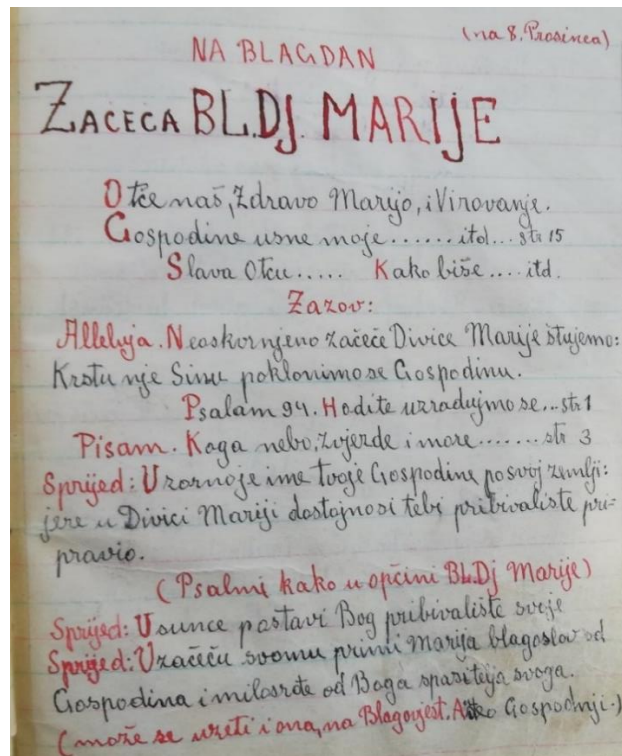 (na 8. Prosinca)
NA BLAGDAN
ZAČEĆA BL.Dj. MARIJE
Otče naš, Zdravo Marijo, i Virovanje.
Gospodine usne moje....... itd... str 15
Slava Otcu..... Kako biše.... itd.
Zazov:
Alleluja. Neoskvrnjeno začeće Divice Marije štujemo:
Krstu nje Sinu poklonimo se Gospodinu.
Psalam 94. Hodite uzradujmo se... str 1
Pisam. Koga nebo, zvjezde i more........ str 3
Sprijed: Uzorno je ime tvoje Gospodine po svoj zemlji:
jere u Divici Mariji dostojnosi tebi pribivalište pri=
pravio.
(Psalmi kako u općini BLDj Marije)
Sprijed: U sunce postavi Bog pribivalište svoje
Sprijed: U začeću svomu primi Marija blagoslov od
Gospodina i milosrđe od Boga spasitelja svoga.
(može se uzeti i ona, na Blagovjest. Gospodnji.)